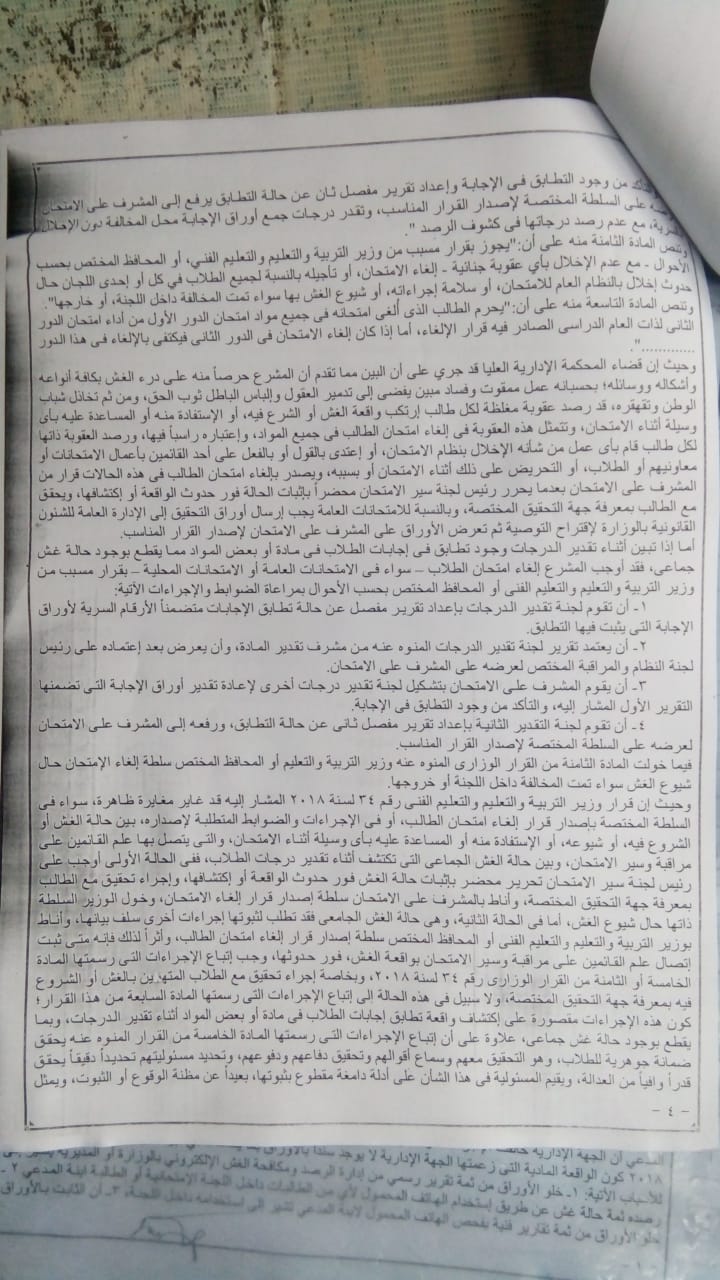 التأكد من وجود التطابق فى الإجابة وإعداد تقرير مفصل ثان عن حالة التطابق يرفع إلى المشرف على الامتحان
على السلطة المختصة لإصدار القرار المناسب، وتقدر درجات جمع أوراق الإجابة محل المخالفة دون الإخلال
بالسرية، مع عدم رصد درجاتها فى كشوف الرصد ".
وتنص المادة الثامنة منه على أن:"يجوز بقرار مسبب من وزير التربية والتعليم والتعليم الفني، أو المحافظ المختص بحسب
الأحوال - مع عدم الإخلال بأي عقوبة جنائية - إلغاء الامتحان، أو تأجيله بالنسبة لجميع الطلاب في كل أو إحدى اللجان حال
حدوث إخلال بالنظام العام للامتحان، أو سلامة إجراءاته، أو شيوع الغش بها سواء تمت المخالفة داخل اللجنة، أو خارجها".
وتنص المادة التاسعة منه على أن:"يحرم الطالب الذى ألغى امتحانه فى جميع مواد امتحان الدور الأول من أداء امتحان الدور
الثانى لذات العام الدراسى الصادر فيه قرار الإلغاء، أما إذا كان إلغاء الامتحان فى الدور الثانى فيكتفى بالإلغاء فى هذا الدور
............".
وحيث إن قضاء المحكمة الإدارية العليا قد جري على أن البين مما تقدم أن المشرع حرصاً منه على درء الغش بكافة أنواعه
وأشكاله ووسائله؛ بحسبانه عمل ممقوت وفساد مبين يفضى إلى تدمير العقول وإلباس الباطل ثوب الحق، ومن ثم تخاذل شباب
الوطن وتقهقره، قد رصد عقوبة مغلظة لكل طالب إرتكب واقعة الغش أو الشرع فيه، أو الإستفادة منه أو المساعدة عليه بأى
وسيلة أثناء الامتحان، وتتمثل هذه العقوبة فى إلغاء امتحان الطالب فى جميع المواد، وإعتباره راسباً فيها، ورصد العقوبة ذاتها
لكل طالب قام بأى عمل من شأنه الإخلال بنظام الامتحان، أو إعتدى بالقول أو بالفعل على أحد القائمين بأعمال الامتحانات أو
معاونيهم أو الطلاب، أو التحريض على ذلك أثناء الامتحان أو بسببه، ويصدر بإلغاء امتحان الطالب فى هذه الحالات قرار من
المشرف على الامتحان بعدما يحرر رئيس لجنة سير الامتحان محضراً بإثبات الحالة فور حدوث الواقعة أو إكتشافها، ويحقق
مع الطالب بمعرفة جهة التحقيق المختصة، وبالنسبة للامتحانات العامة يجب إرسال أوراق التحقيق إلى الإدارة العامة للشئون
القانونية بالوزارة لإقتراح التوصية ثم تعرض الأوراق على المشرف على الامتحان لإصدار القرار المناسب.
أما إذا تبين أثناء تقدير الدرجات وجود تطابق فى إجابات الطلاب فى مادة أو بعض المواد مما يقطع بوجود حالة غش
جماعى، فقد أوجب المشرع إلغاء امتحان الطلاب – سواء فى الامتحانات العامة أو الامتحانات المحلية – بقرار مسبب من
وزير التربية والتعليم والتعليم الفنى أو المحافظ المختص بحسب الأحوال بمراعاة الضوابط والإجراءات الآتية:
١- أن تقوم لجنة تقدير الدرجات بإعداد تقرير مفصل عن حالة تطابق الإجابات متضمناً الأرقام السرية لأوراق
الإجابة التى يثبت فيها التطابق.
٢- أن يعتمد تقرير لجنة تقدير الدرجات المنوه عنه من مشرف تقدير المادة، وأن يعرض بعد إعتماده على رئيس
لجنة النظام والمراقبة المختص لعرضه على المشرف على الامتحان.
٣- أن يقوم المشرف على الامتحان بتشكيل لجنة تقدير درجات أخرى لإعادة تقدير أوراق الإجابة التى تضمنها
التقرير الأول المشار إليه، والتأكد من وجود التطابق فى الإجابة.
٤- أن تقوم لجنة التقدير الثانية بإعداد تقرير مفصل ثانى عن حالة التطابق، ورفعه إلى المشرف على الامتحان
لعرضه على السلطة المختصة لإصدار القرار المناسب.
فيما خولت المادة الثامنة من القرار الوزارى المنوه عنه وزير التربية والتعليم أو المحافظ المختص سلطة إلغاء الإمتحان حال
شيوع الغش سواء تمت المخالفة داخل اللجنة أو خروجها.
وحيث إن قرار وزير التربية و التعليم والتعليم الفنى رقم ٣٤ لسنة ٢٠١٨ المشار إليه قد غاير مغايرة ظاهرة، سواء فى
السلطة المختصة بإصدار قرار إلغاء امتحان الطالب، أو فى الإجراءات والضوابط المتطلبة لإصداره، بين حالة الغش أو
الشروع فيه، أو شيوعه، أو الإستفادة منه أو المساعدة عليه بأى وسيلة أثناء الامتحان، والتى يتصل بها علم القائمين على
مراقبة وسير الامتحان، وبين حالة الغش الجماعى التى تكتشف أثناء تقدير درجات الطلاب، ففى الحالة الأولى أوجب على
رئيس لجنة سير الامتحان تحرير محضر بإثبات حالة الغش فور حدوث الواقعة أو إكتشافها، وإجراء تحقيق مع الطالب
بمعرفة جهة التحقيق المختصة، وأناط بالمشرف على الامتحان سلطة إصدار قرار إلغاء الامتحان، وخول الوزير السلطة
ذاتها حال شيوع الغش، أما فى الحالة الثانية، وهى حالة الغش الجامعى فقد تطلب لثبوتها إجراءات أخرى سلف بيانها، وأناط
بوزير التربية والتعليم والتعليم الفنى أو المحافظ المختص سلطة إصدار قرار إلغاء امتحان الطالب، وأثراً لذلك فإنه متى ثبت
إتصال علم القائمين على مراقبة وسير الإمتحان بواقعة الغش، فور حدوثها، وجب إتباع الإجراءات التى رسمتها المادة
الخامسة أو الثامنة من القرار الوزارى رقم ٣٤ لسنة ٢٠١٨، وبخاصة إجراء تحقيق مع الطلاب المتهمين بالغش أو الشروع
فيه بمعرفة جهة التحقيق المختصة، ولا سبيل فى هذه الحالة إلى إتباع الإجراءات التى رسمتها المادة السابعة من هذا القرار؛
كون هذه الإجراءات مقصورة على إكتشاف واقعة تطابق إجابات الطلاب فى مادة أو بعض المواد أثناء تقدير الدرجات، وبما
يقطع بوجود حالة غش جماعى، علاوة على أن إتباع الإجراءات التى رسمتها المادة الخامسة من القرار المنوه عنه يحقق
ضمانة جوهرية للطلاب، وهو التحقيق معهم وسماع أقوالهم وتحقيق دفاعهم ودفوعهم، وتحديد مسئوليتهم تحديداً دقيقاً يحقق
قدراً وافياً من العدالة، ويقيم المسئولية فى هذا الشأن على أدلة دامغة مقطوع بثبوتها، بعيداً عن مظنة الوقوع أو الثبوت، ويمثل
- ٤ -
المدعي أن الجهة الإدارية
٢٠١٨ كون الواقعة المادية التى زعمتها الجهة الإدارية لا يوجد سنداً بالأوراق
للأسباب الآتية: ١- خلو الأوراق من ثمة تقرير رسمي من إدارة الرصد ومكافحة الغش الإلكتروني بالوزارة أو المديرية
رصده ثمة حالة غش عن طريق إستخدام الهاتف المحمول لأي من الطالبات داخل اللجنة الإمتحانية أو الطالبة ابنة المدعي ٢-
خلو الأوراق من ثمة تقارير فنية بفحص الهاتف المحمول لابنة المدعي تشير الى استخدامه داخل اللجنة، ٣- أن الثابت بالأوراق